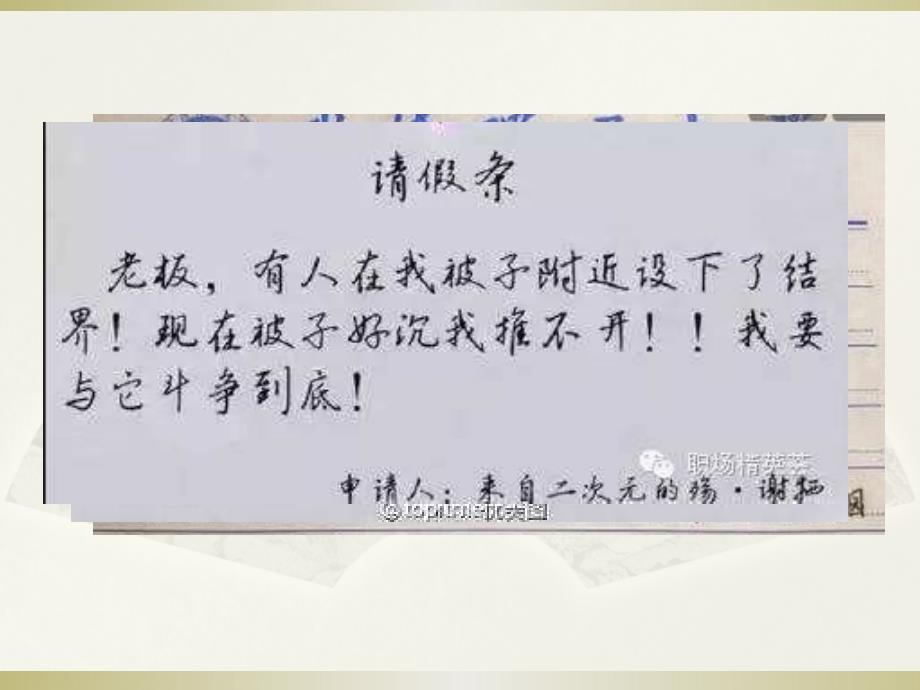 请假条
老板，有人在我被子附近设下了结
界！现在被子好沉我推不开！！我要
与它斗争到底！
职场精英荟
申请人：来自二次元的殇·谢栖